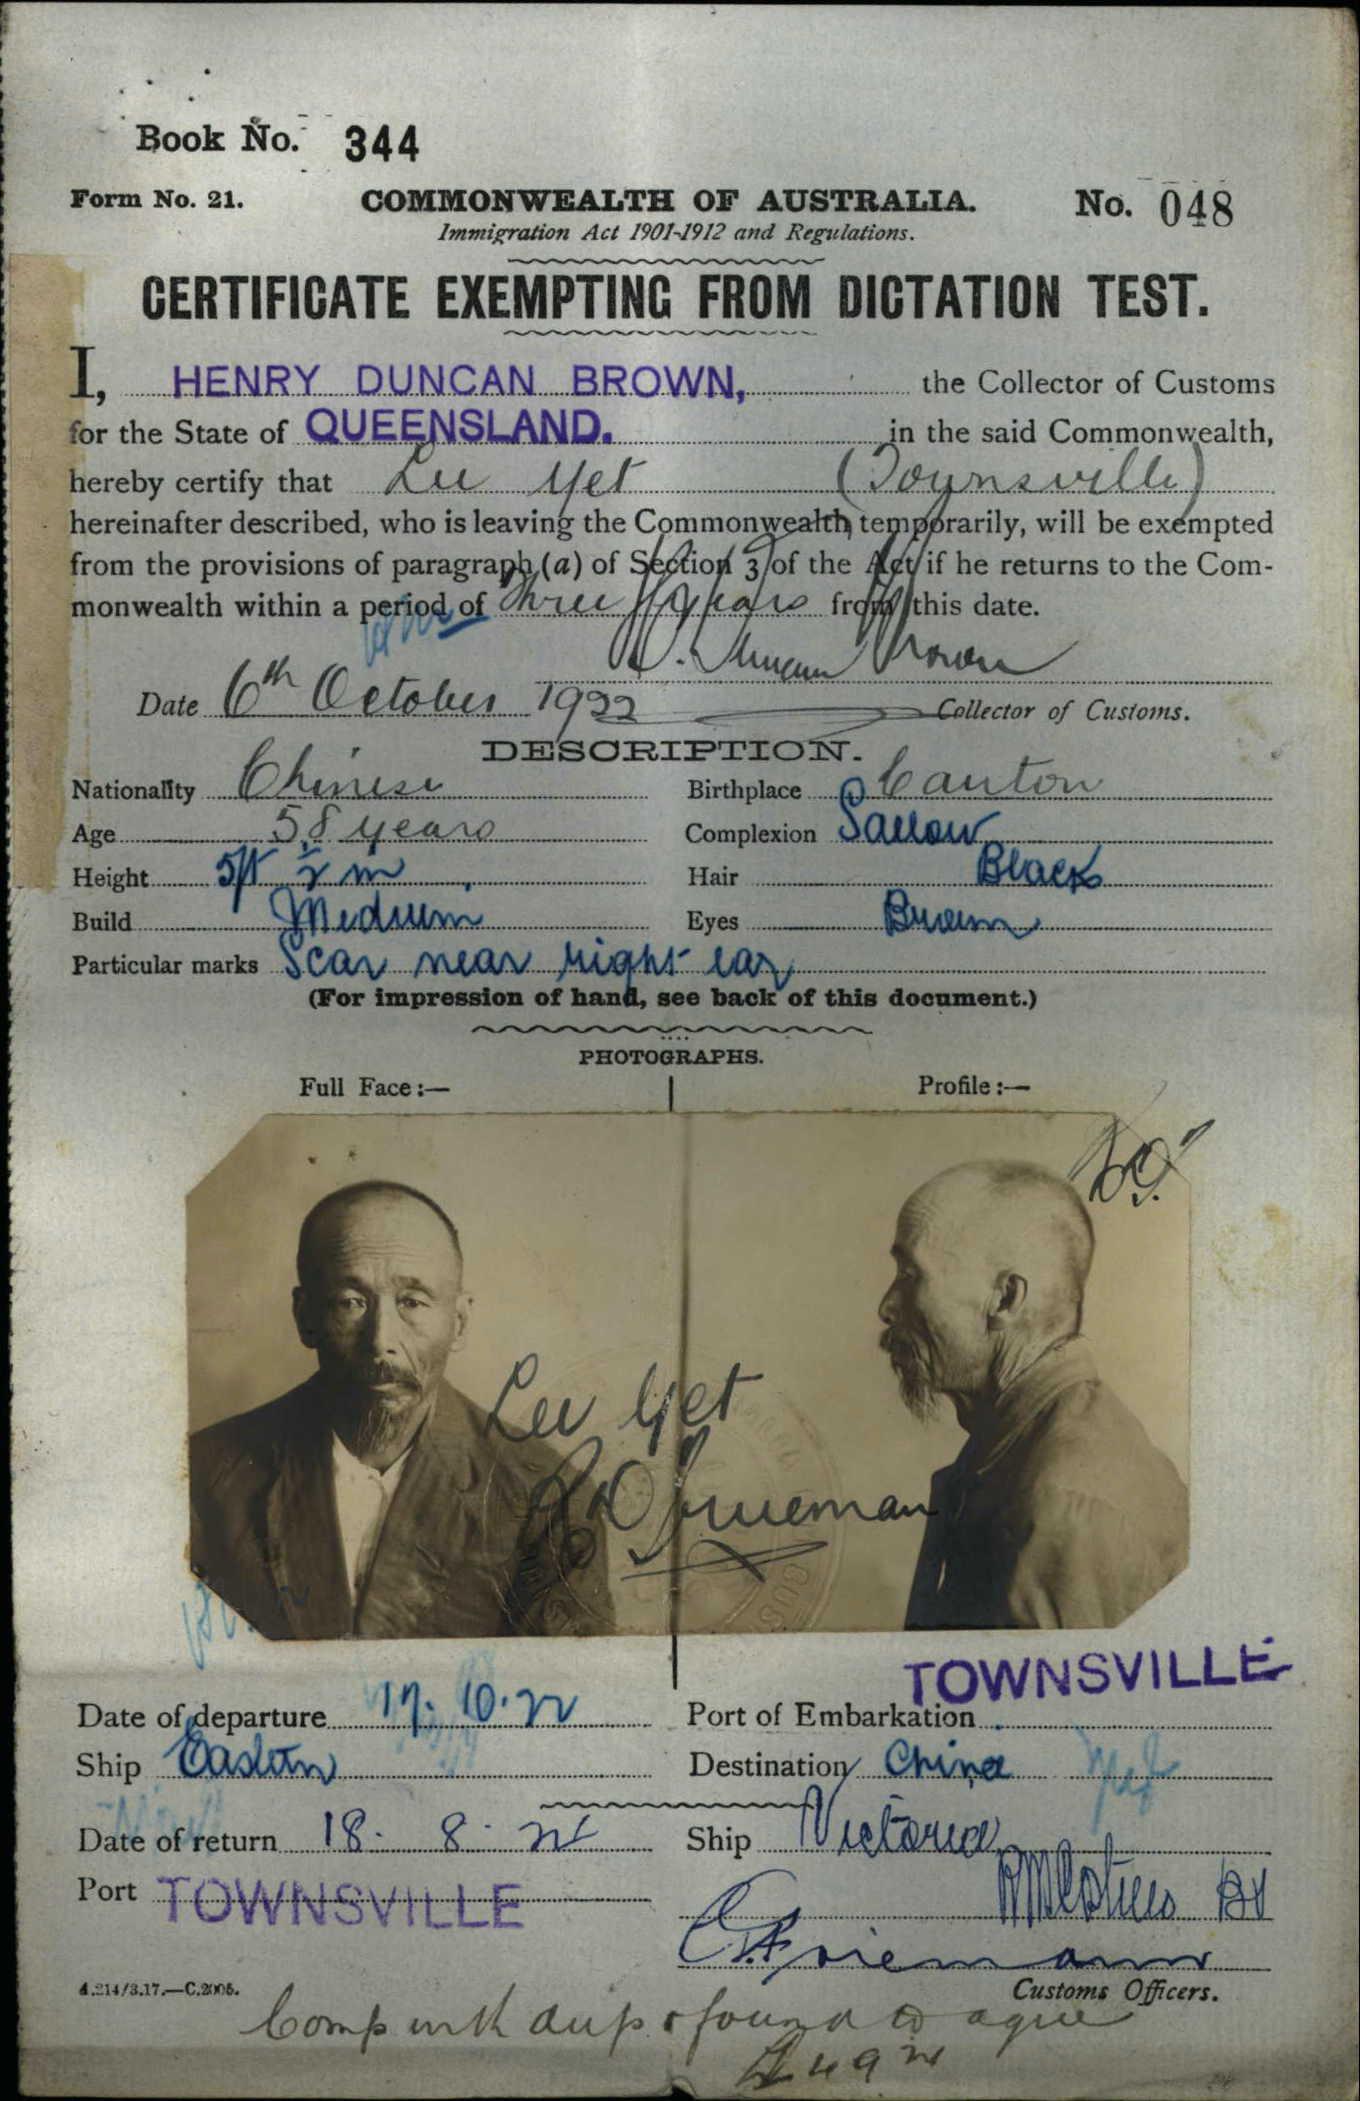 Book No. 344
Form No. 21. COMMONWEALTH OF AUSTRALIA. No. 048
Immigration Act 1901-1912 and Regulations.
CERTIFICATE EXEMPTING FROM DICTATION TEST.
I, HENRY DUNCAN BROWN, the Collector of Customs
for the State of QUEENSLAND. in the said Commonwealth,
hereby certify that Lee Yet (Townsville)
hereinafter described, who is leaving the Commonwealth temporarily, will be exempted
from the provisions of paragraph (a) of Section 3 of the Act if he returns to the Com-
monwealth within a period of Three years from this date.
H. Duncan Brown
Date 6th October 1922 Collector of Customs.
DESCRIPTION.
Nationality Chinese Birthplace Canton
Age 58 years Complexion Sallow
Height 5ft ½ in Hair Black
Build Medium Eyes Brown
Particular marks Scar near right ear
(For impression of hand, see back of this document.)
PHOTOGRAPHS.
Full Face:— Profile:—
Lee Yet
TOWNSVILLE
Date of departure 17.10.22 Port of Embarkation
Ship Eastern Destination China
Date of return 18. 8. 24 Ship Victoria
Port TOWNSVILLE
Customs Officers.
A.214/3.17.—C.2005.
Comp with dup & found to agree